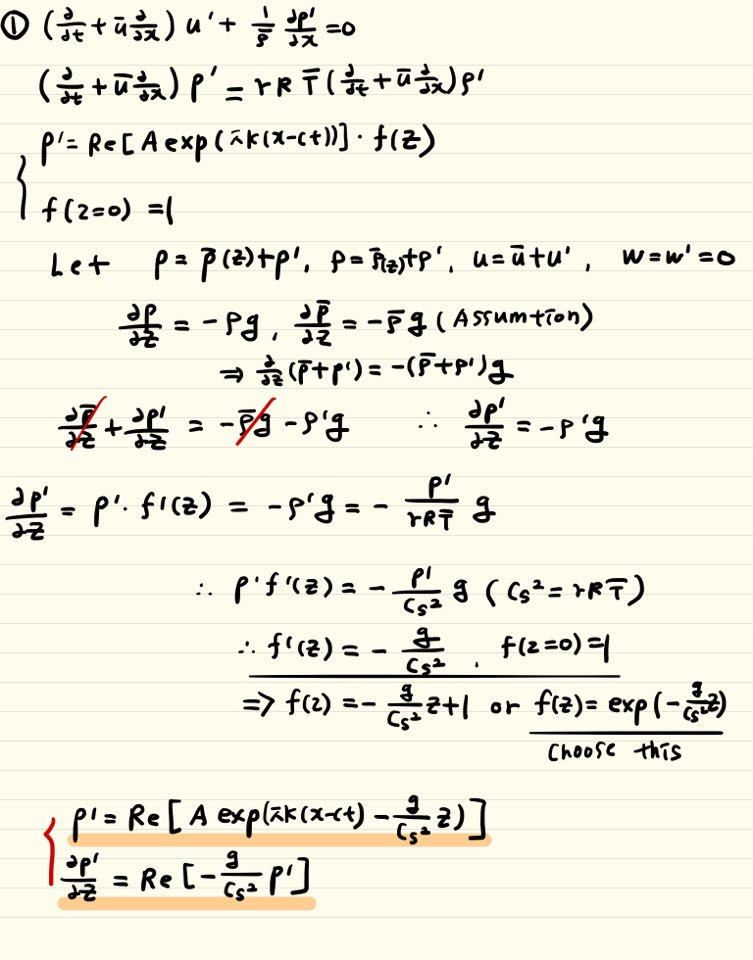 ① (∂/∂t + ū ∂/∂x) u' + 1/ρ̄ ∂p'/∂x = 0
(∂/∂t + ū ∂/∂x) p' = rR T̄ (∂/∂t + ū ∂/∂x) ρ'
p' = Re[A exp(ik(x-ct))] · f(z)
f(z=0) = 1
Let p = p̄(z)+p', ρ = ρ̄(z)+ρ', u = ū+u', w = w' = 0
∂p/∂z = -ρg, ∂p̄/∂z = -ρ̄g (Assumtion)
⇒ ∂/∂z (p̄+p') = -(ρ̄+ρ')g
∂p̄/∂z + ∂p'/∂z = -ρ̄g - ρ'g ∴ ∂p'/∂z = -ρ'g
∂p'/∂z = p'·f'(z) = -ρ'g = - p'/(rRT̄) g
∴ p'f'(z) = - p'/Cs² g (Cs² = rRT̄)
∴ f'(z) = - g/Cs² , f(z=0) = 1
=> f(z) = - g/Cs² z+1 or f(z) = exp(- g/Cs² z)
choose this
p' = Re[A exp(ik(x-ct) - g/Cs² z)]
∂p'/∂z = Re[- g/Cs² p']